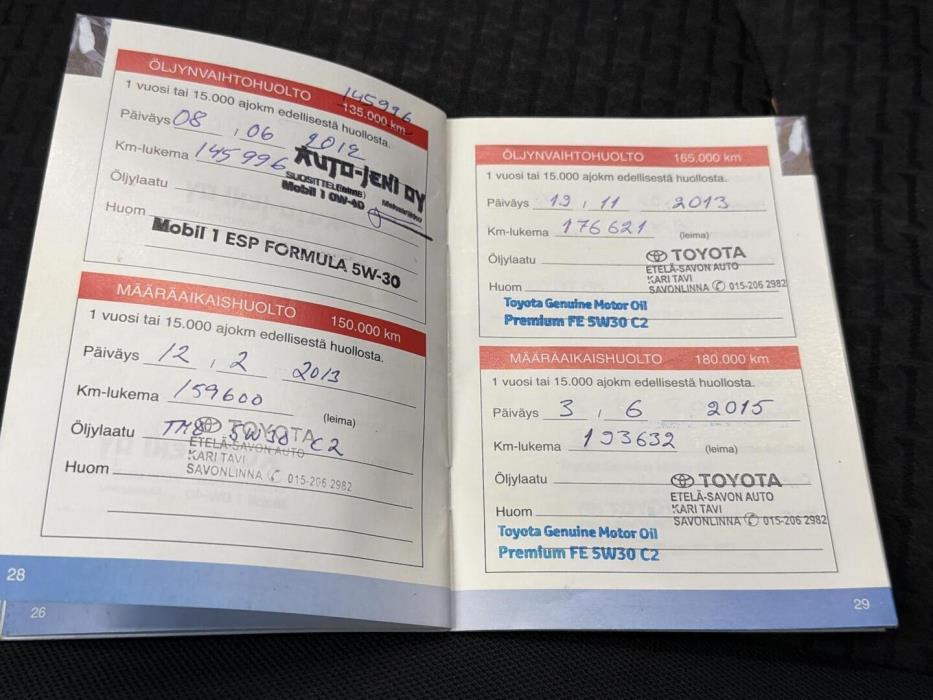 ÖLJYNVAIHTOHUOLTO 145996 135.000 km
1 vuosi tai 15.000 ajokm edellisestä huollosta.
Päiväys 08 , 06 2012
Km-lukema 145996
AUTO-JENI OY
SUOSITTELEMME
Mobil 1 0W-40
Öljylaatu
Huom
Mobil 1 ESP FORMULA 5W-30
MÄÄRÄAIKAISHUOLTO 150.000 km
1 vuosi tai 15.000 ajokm edellisestä huollosta.
Päiväys 12 , 2 2013
Km-lukema 159600
(leima)
Öljylaatu 5W30 C2
TOYOTA
ETELÄ-SAVON AUTO
KARI TAVI
Huom
SAVONLINNA ✆ 015-206 2982
28
26
ÖLJYNVAIHTOHUOLTO 165.000 km
1 vuosi tai 15.000 ajokm edellisestä huollosta.
Päiväys 13 , 11 2013
Km-lukema 176621 (leima)
Öljylaatu
TOYOTA
ETELÄ-SAVON AUTO
KARI TAVI
Huom
SAVONLINNA ✆ 015-206 2982
Toyota Genuine Motor Oil
Premium FE 5W30 C2
MÄÄRÄAIKAISHUOLTO 180.000 km
1 vuosi tai 15.000 ajokm edellisestä huollosta.
Päiväys 3 , 6 2015
Km-lukema 193632 (leima)
Öljylaatu
TOYOTA
ETELÄ-SAVON AUTO
KARI TAVI
Huom
SAVONLINNA ✆ 015-206 2982
Toyota Genuine Motor Oil
Premium FE 5W30 C2
29